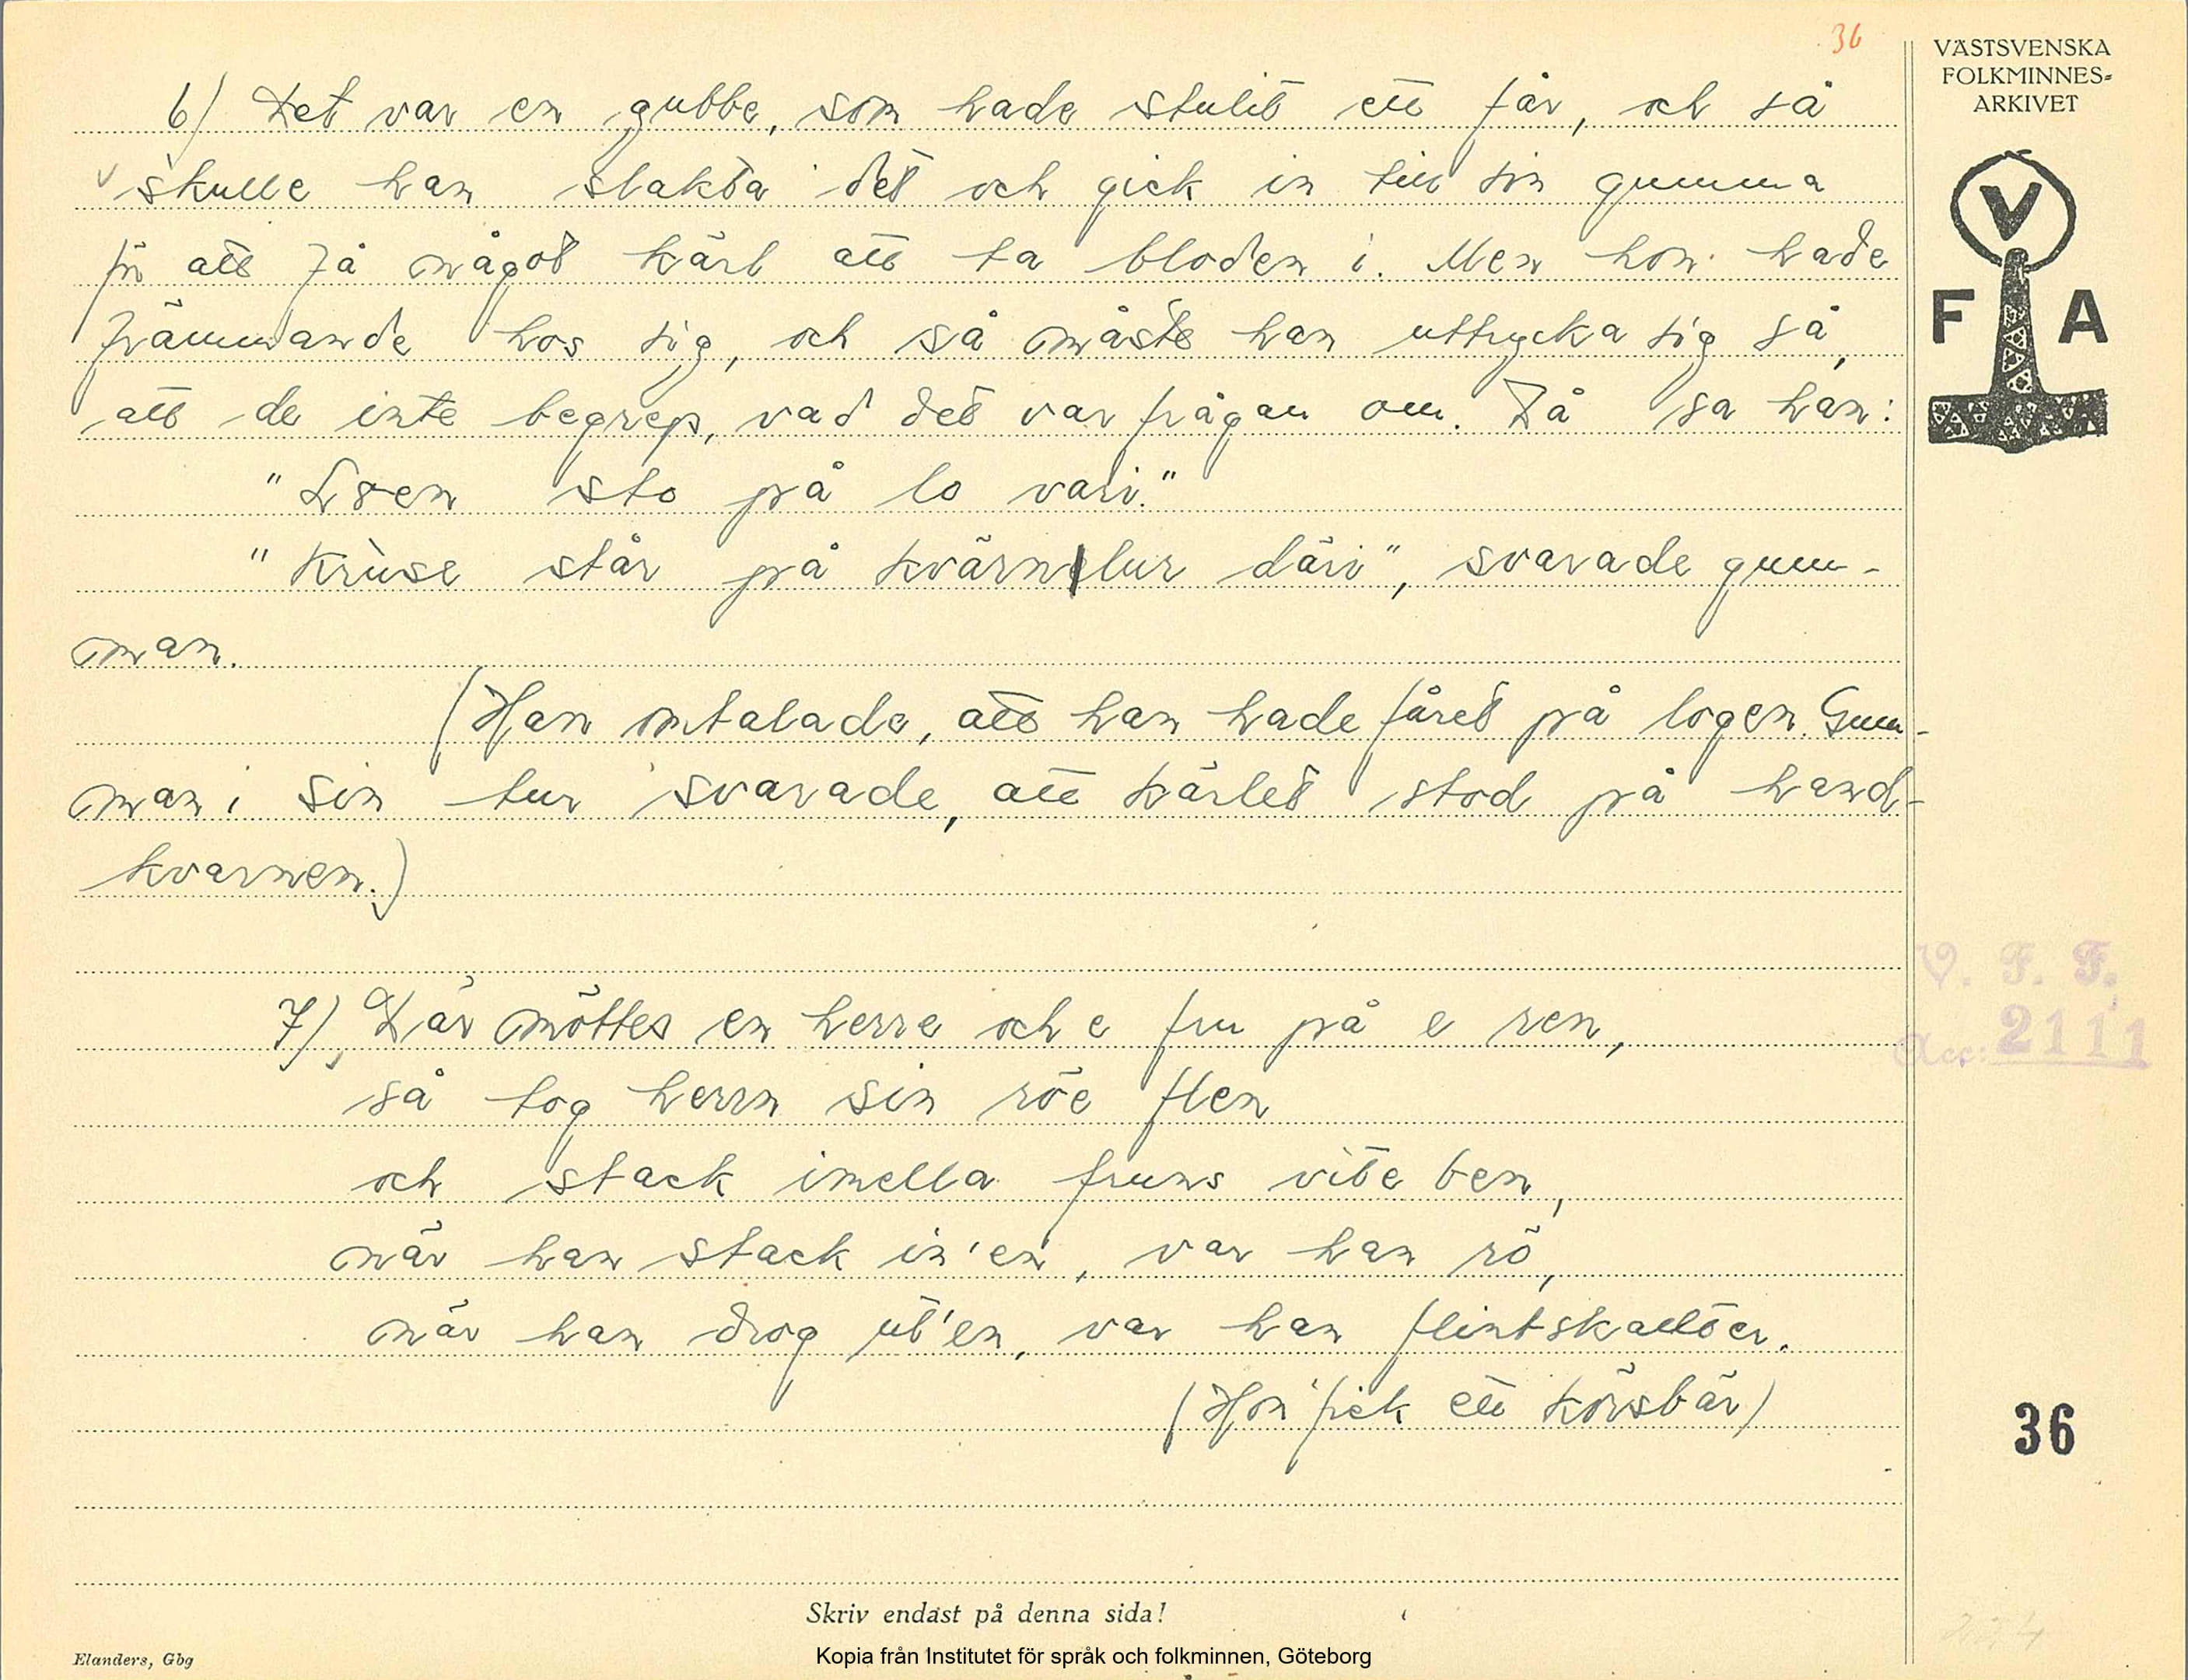 36
VÄSTSVENSKA
FOLKMINNES-
ARKIVET
V
F A
6) Det var en gubbe, som hade stulit ett får, och så
skulle han slakta det och gick in till sin gumma
för att få något kärl att ta bloden i. Men hon hade
främmande hos sig, och så måste han uttrycka sig så,
att de inte begrep, vad det var frågan om. Då sa han:
" sto på lo vari."
"Kruse står på kvärnlur däri", svarade gum-
man.
(Han omtalade, att han hade fåret på logen. Gum-
man i sin tur svarade, att kärlet stod på hand-
kvarnen.)
7) Där möttes en herre och e fru på e ren,
så tog herrn sin röe flen
och stack imella fruns vite ben,
när han stack in'en, var han rö,
när han drog ut'en, var han flintskallöer.
(Hon fick ett körsbär)
V. F. F.
Acc: 2111
36
Skriv endast på denna sida!
Elanders, Gbg
Kopia från Institutet för språk och folkminnen, Göteborg